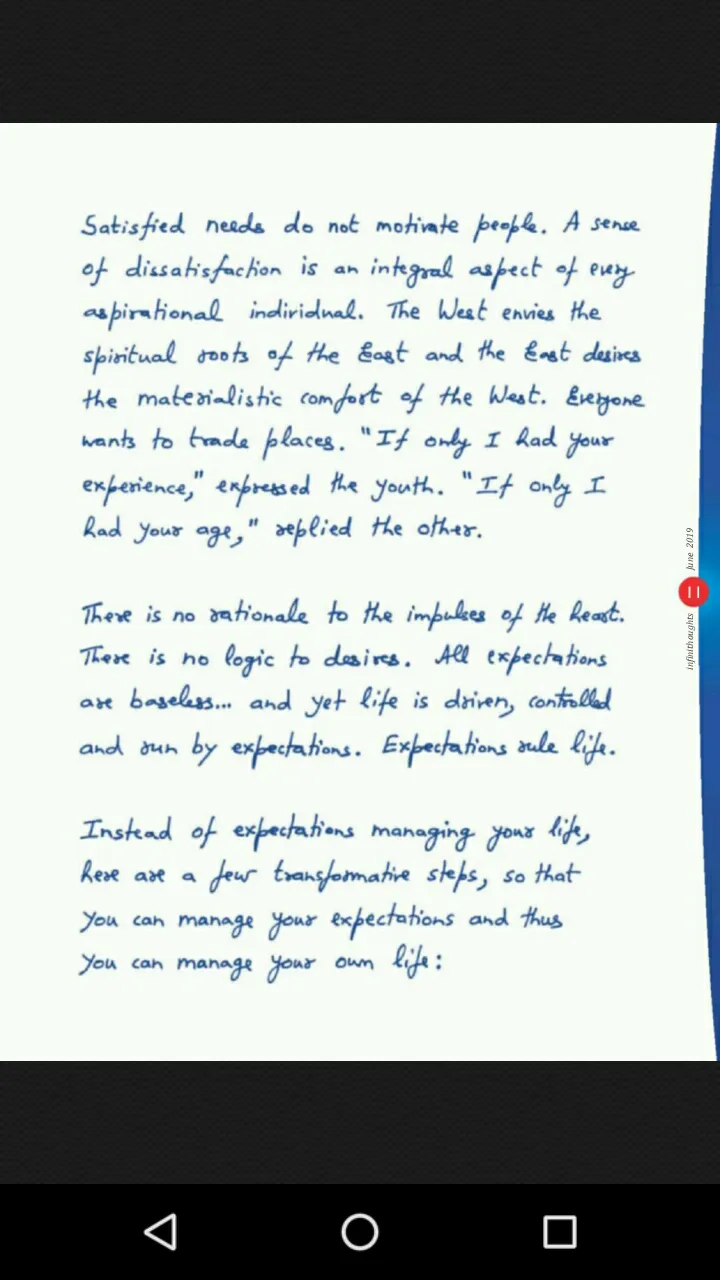 Satisfied needs do not motivate people. A sense
of dissatisfaction is an integral aspect of every
aspirational individual. The West envies the
spiritual roots of the East and the East desires
the materialistic comfort of the West. Everyone
wants to trade places. "If only I had your
experience," expressed the youth. "If only I
had your age," replied the other.
There is no rationale to the impulses of the heart.
There is no logic to desires. All expectations
are baseless... and yet life is driven, controlled
and run by expectations. Expectations rule life.
Instead of expectations managing your life,
here are a few transformative steps, so that
you can manage your expectations and thus
you can manage your own life:
infinithoughts 11 June 2019